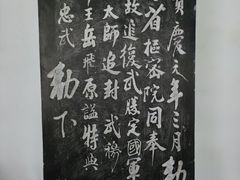 慶元年三月勅
省樞密院同奉
故追復武勝定國軍
太師追封武穆
王岳飛原謚特與
忠武
勅下